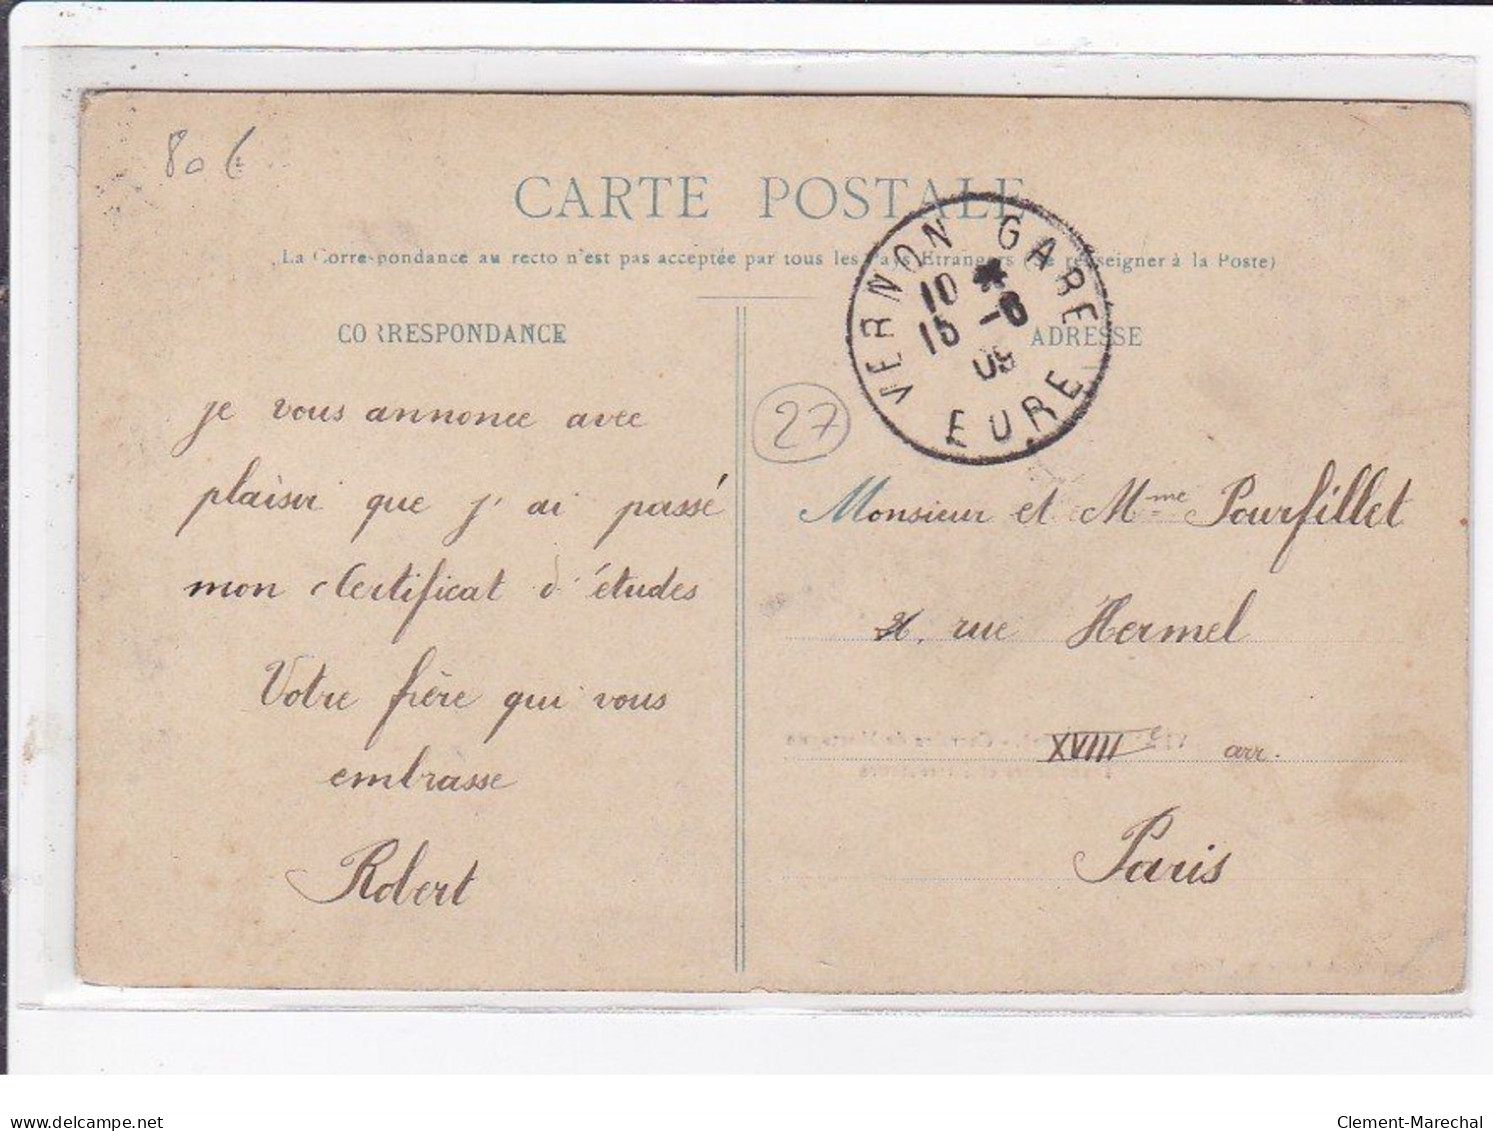 80 €
CARTE POSTALE
La Correspondance au recto n'est pas acceptée par tous les Pays Etrangers (Se renseigner à la Poste)
CORRESPONDANCE
ADRESSE
VERNON GARE
10 *
15 -6
09
EURE
27
je vous annonce avec
plaisir que j'ai passé
mon certificat d'études
Votre frère qui vous
embrasse
Robert
Monsieur et Mme Pourfillet
rue Hermel
XVIIIe arr.
Paris
Clement-Marechal
delcampe.net